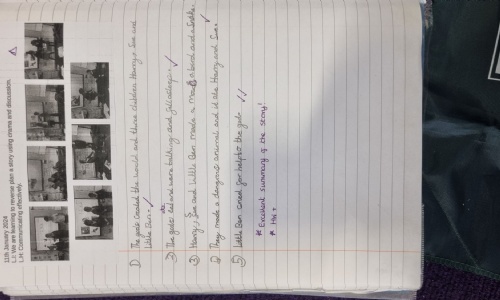 11th January 2024
L.I: We are learning to reverse plan a story using drama and discussion.
L.H: Communicating effectively.
1) The gods created the world and three children Harry, Sue and
Little Ben.
2) The gods led and were talking and
3) Harry, Sue and Little Ben made a a bird and a snake.
4) They made a dangerous animal and it ate Harry and Sue.
5) Little Ben cried for help to the gods.
* Excellent summary of the story!